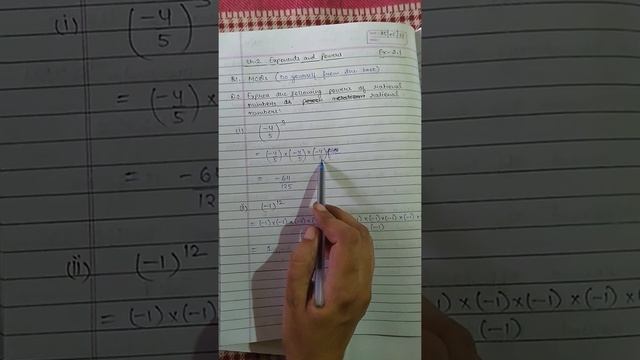 Ch-2 Exponents and Powers Ex-2.1
Q1. MCQs (Do yourself from the book)
Q2. Express the following powers of rational
numbers as rational
numbers:
(i) (-4/5)³
= (-4/5) × (-4/5) × (-4/5)
= -64/125
(ii) (-1)¹²
= (-1)×(-1)×(-1)×(-1)×(-1)×(-1)×(-1)×
(-1)
= 1